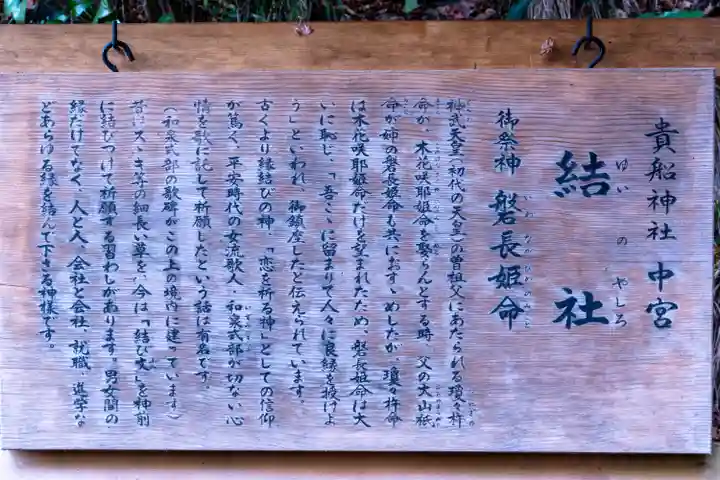 貴船神社 中宮
ゆいのやしろ
結社
いわながひめのみこと
御祭神 磐長姫命
神武天皇(初代の天皇)の曽祖父にあたられる瓊々杵
命が、木花咲耶姫命を娶らんとする時、父の大山祇
命が姉の磐長姫命も共におすゝめしたが、瓊々杵命
は木花咲耶姫命だけを望まれたため、磐長姫命は大
いに恥じ、「吾こゝに留まりて人々に良縁を授けよ
う」といわれ、御鎮座したと伝えられています。
古くより縁結びの神、「恋を祈る神」としての信仰
が篤く、平安時代の女流歌人・和泉式部が切ない心
情を歌に託して祈願したという話は有名です。
(和泉式部の歌碑がこの上の境内に建っています)
昔はスゝき等の細長い草を、今は「結び文」を神前
に結びつけて祈願する習わしがあります。男女間の
縁だけでなく、人と人、会社と会社、就職、進学な
どあらゆる縁を結んで下さる神様です。